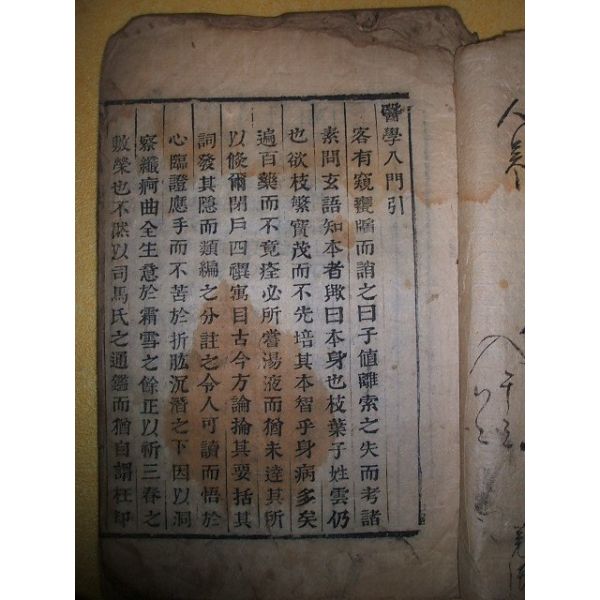 醫學入門引
客有窺甕牖而誚之曰子值離索之失而考諸
素問玄語知本者歟曰本身也枝葉子姓雲仍
也欲枝繁實茂而不先培其本智乎身病多矣
遍百藥而不竟痊必所嘗湯液而猶未達其所
以倏爾閉戶四禩寓目古今方論掄其要括其
詞發其隱而類編之分註之令人可讀而悟於
心臨證應手而不苦於折肱沉潛之下因以洞
察纖疴曲全生意於霜雪之餘正以祈三春之
敷榮也不然以司馬氏之通鑑而猶自謂枉却